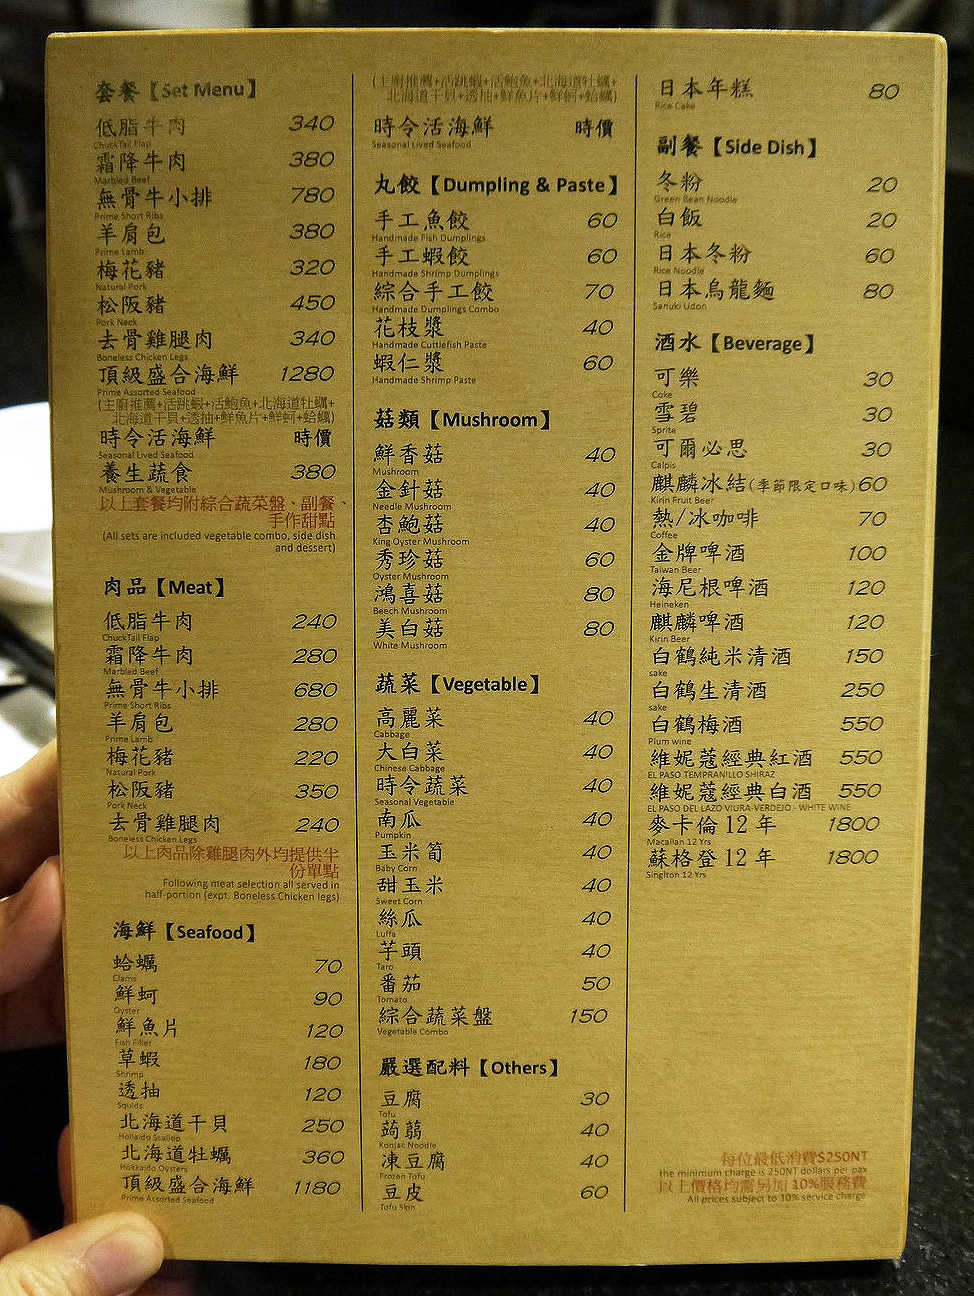 套餐【Set Menu】
低脂牛肉 340
ChuckTail Flap
霜降牛肉 380
Marbled Beef
無骨牛小排 780
Prime Short Ribs
羊肩包 380
Prime Lamb
梅花豬 320
Natural Pork
松阪豬 450
Pork Neck
去骨雞腿肉 340
Boneless Chicken Legs
頂級盛合海鮮 1280
Prime Assorted Seafood
(主廚推薦+活跳蝦+活鮑魚+北海道牡蠣+
北海道干貝+透抽+鮮魚片+鮮蚵+蛤蠣)
時令活海鮮 時價
Seasonal Lived Seafood
養生蔬食 380
Mushroom & Vegetable
以上套餐均附綜合蔬菜盤、副餐、
手作甜點
(All sets are included vegetable combo, side dish
and dessert)
肉品【Meat】
低脂牛肉 240
ChuckTail Flap
霜降牛肉 280
Marbled Beef
無骨牛小排 680
Prime Short Ribs
羊肩包 280
Prime Lamb
梅花豬 220
Natural Pork
松阪豬 350
Pork Neck
去骨雞腿肉 240
Boneless Chicken Legs
以上肉品除雞腿肉外均提供半
份單點
Following meat selection all served in
half-portion (expt. Boneless Chicken legs)
海鮮【Seafood】
蛤蠣 70
Clams
鮮蚵 90
Oyster
鮮魚片 120
Fish Fillet
草蝦 180
Shrimp
透抽 120
Squids
北海道干貝 250
Hokkaido Scallop
北海道牡蠣 360
Hokkaido Oysters
頂級盛合海鮮 1180
Prime Assorted Seafood
(主廚推薦+活跳蝦+活鮑魚+北海道牡蠣+
北海道干貝+透抽+鮮魚片+鮮蚵+蛤蠣)
時令活海鮮 時價
Seasonal Lived Seafood
丸餃【Dumpling & Paste】
手工魚餃 60
Handmade Fish Dumplings
手工蝦餃 60
Handmade Shrimp Dumplings
綜合手工餃 70
Handmade Dumplings Combo
花枝漿 40
Handmade Cuttlefish Paste
蝦仁漿 60
Handmade Shrimp Paste
菇類【Mushroom】
鮮香菇 40
Mushroom
金針菇 40
Needle Mushroom
杏鮑菇 40
King Oyster Mushroom
秀珍菇 60
Oyster Mushroom
鴻喜菇 80
Beech Mushroom
美白菇 80
White Mushroom
蔬菜【Vegetable】
高麗菜 40
Cabbage
大白菜 40
Chinese Cabbage
時令蔬菜 40
Seasonal Vegetable
南瓜 40
Pumpkin
玉米筍 40
Baby Corn
甜玉米 40
Sweet Corn
絲瓜 40
Luffa
芋頭 40
Taro
番茄 50
Tomato
綜合蔬菜盤 150
Vegetable Combo
嚴選配料【Others】
豆腐 30
Tofu
蒟蒻 40
Konjac Noodle
凍豆腐 40
Frozen Tofu
豆皮 60
Tofu Skin
日本年糕 80
Rice Cake
副餐【Side Dish】
冬粉 20
Green Bean Noodle
白飯 20
Rice
日本冬粉 60
Rice Noodle
日本烏龍麵 80
Sanuki Udon
酒水【Beverage】
可樂 30
Coke
雪碧 30
Sprite
可爾必思 30
Calpis
麒麟冰結(季節限定口味) 60
Kirin Fruit Beer
熱/冰咖啡 70
Coffee
金牌啤酒 100
Taiwan Beer
海尼根啤酒 120
Heineken
麒麟啤酒 120
Kirin Beer
白鶴純米清酒 150
sake
白鶴生清酒 250
sake
白鶴梅酒 550
Plum wine
維妮蔻經典紅酒 550
EL PASO TEMPRANILLO SHIRAZ
維妮蔻經典白酒 550
EL PASO DEL LAZO VIURA-VERDEJO - WHITE WINE
麥卡倫 12 年 1800
Macallan 12 Yrs
蘇格登 12 年 1800
Singlton 12 Yrs
每位最低消費$250NT
the minimum charge is 250NT dollars per pax
以上價格均需另加 10%服務費
All prices subject to 10% service charge